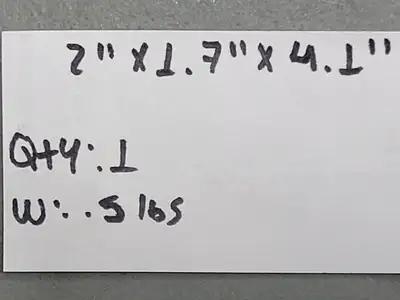 2" x 1.7" x 4.1"
Qty: 1
W: .5 lbs